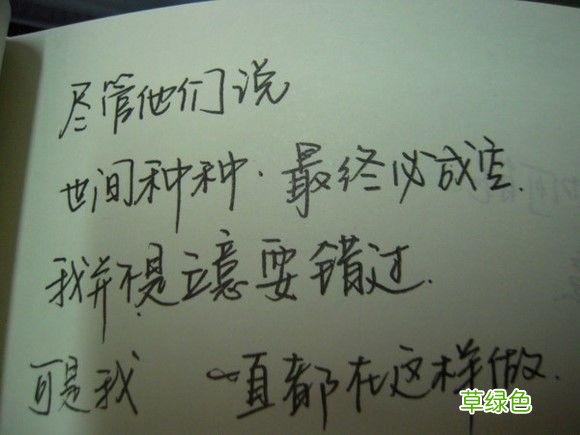 尽管他们说
世间种种.最终必成空.
我并不是立意要错过.
可是我 一直都在这样做.
草绿色